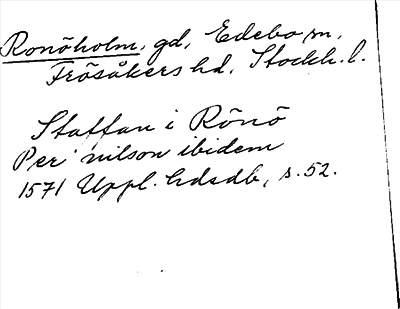 Ronöholm, gd, Edebo sn,
Frösåkers hd, Stockh. l.
Staffan i Rönö
Per nilson ibidem
1571 Uppl. hdsdb, s. 52.